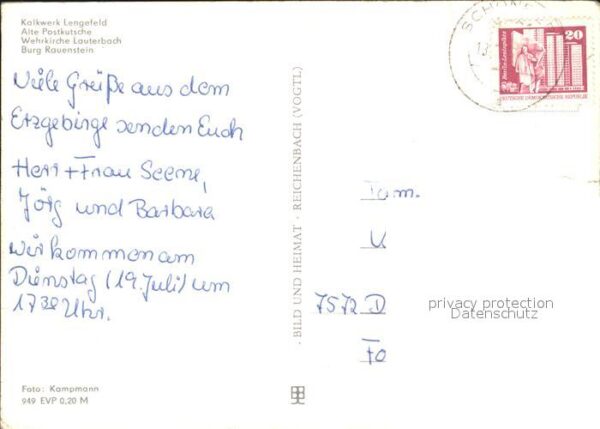 Kalkwerk Lengefeld
Alte Postkutsche
Wehrkirche Lauterbach
Burg Rauenstein
Viele Grüße aus dem
Erzgebirge senden Euch
Herr + Frau Seeme,
Jörg und Barbara
wir kommen am
Dienstag (19. Juli) um
17³⁰ Uhr.
Foto: Kampmann
949 EVP 0,20 M
· BILD UND HEIMAT · REICHENBACH (VOGTL)
20
DEUTSCHE DEMOKRATISCHE REPUBLIK
Fam.
K
7572 D
Fo
privacy protection
Datenschutz